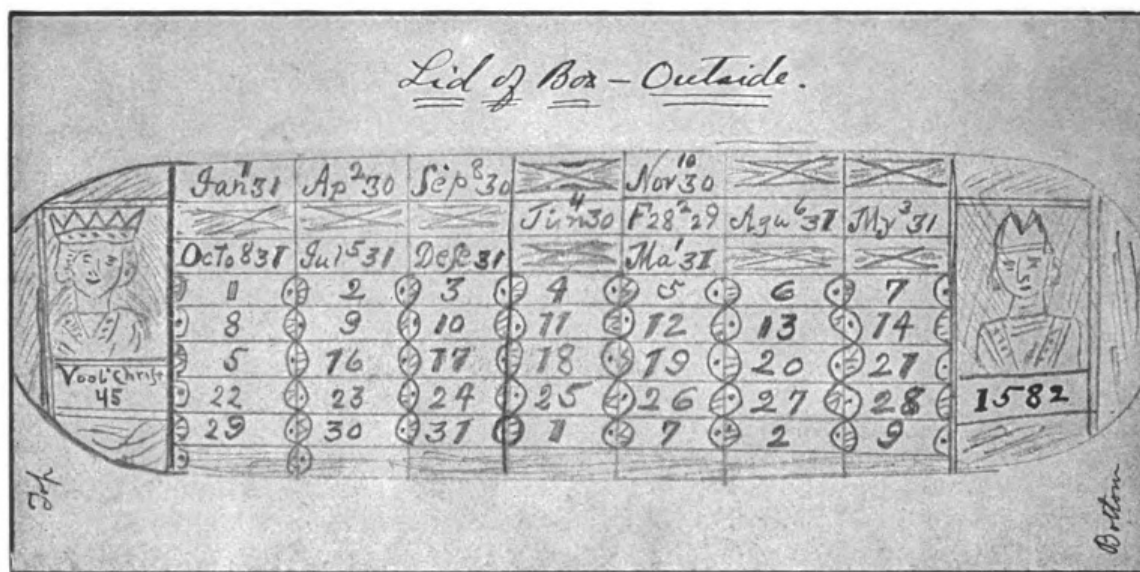 Lid of Box – Outside.
Jan 1 31 Ap 2 30 Sep 8 30 Nov 10 30
Jun 4 30 F 28 2 29 Agu 6 31 My 3 31
Octo 8 31 Jul 5 31 Dese 31 Ma 1 31
1 2 3 4 5 6 7
8 9 10 11 12 13 14
5 16 17 18 19 20 21
22 23 24 25 26 27 28
29 30 31 1 7 2 9
Voor Christ
45
1582
Top
Bottom